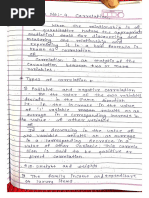 Correlation
When the relationship is of
a quantitative nature the appropriate
statistical tools for discovering and
measuring and relationship and
expressing it in a brief formula is
known as correlation
Correlation is an analysis of the
Covariation between two or more
variables.
Types of correlation
1) Positive and negative correlation
the value of the two variables
deviate in the same direction
i.e. if the increase in the value
of one variable results on an
average in a corresponding increase in
the value of other variable on an
average
or
if a decreasing in the value of
one variable results on an average
in a corresponding decrease in the
value of other variable. Correlation
is said to be positive or
direct correlation.
e.g. Heights and weights
The family Income and expenditure
on luxury items